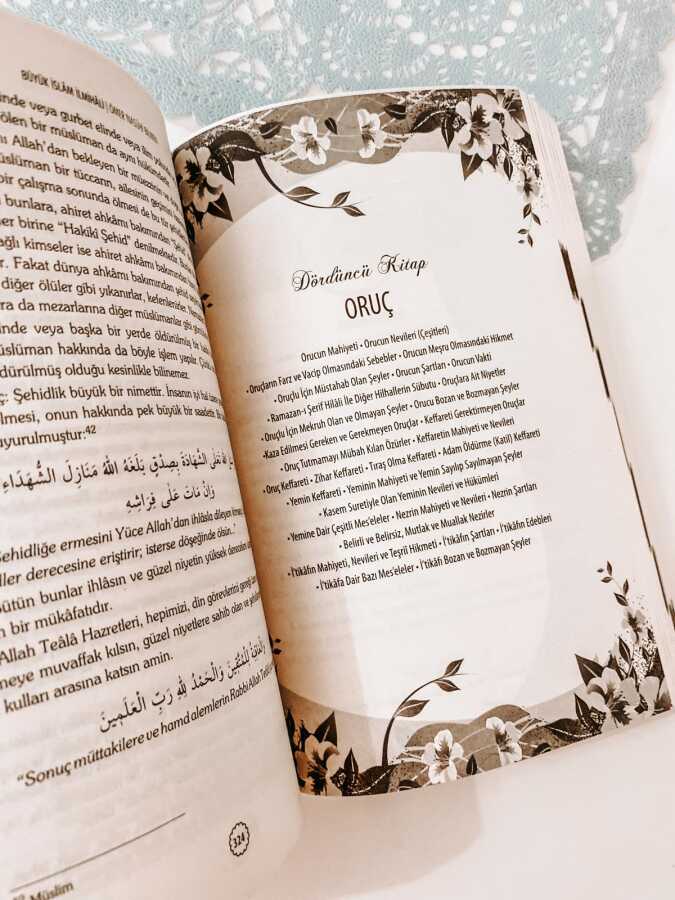 BÜYÜK İSLÂM İLMİHALİ | ÖMER NASUHİ
inde veya gurbet elinde veya ilim
ölen bir müslüman da aynı hükümdedir
Allah'dan bekleyen bir müezzinin
müslüman bir tüccarın, ailesinin geçimi
bir çalışma sonunda ölmesi de bu tür
bunlara, ahiret ahkâmı bakımından
er birine "Hakîkî Şehid" denilmektedir.
ağlı kimseler ise ahiret ahkâmı bakımından
r. Fakat dünya ahkâmı bakımından şehid
diğer ölüler gibi yıkanırlar, kefenlenirler.
ra da mezarlarına diğer müslümanlar gibi
inde veya başka bir yerde öldürülmüş
üslüman hakkında da böyle işlem yapılır.
ldürülmüş olduğu kesinlikle bilinemez.
ç: Şehidlik büyük bir nimettir. İnsanın iyi hal
ilmesi, onun hakkında pek büyük bir saadettir.
uyurulmuştur:42
اللهَ تَعَالَى الشَّهَادَةَ بِصِدْقٍ بَلَّغَهُ اللهُ مَنَازِلَ الشُّهَدَاءِ
وَاِنْ مَاتَ عَلَى فِرَاشِهِ
şehidliğe ermesini Yüce Allah'dan ihlâsla dileyen
iller derecesine eriştirir; isterse döşeğinde ölsün.."
bütün bunlar ihlâsın ve güzel niyetin yüksek
n bir mükâfatıdır.
Allah Teâlâ Hazretleri, hepimizi, din görevlerini
meye muvaffak kılsın, güzel niyetlere sahib olan ve
kulları arasına katsın amin.
لِلْمُتَّقِينَ وَالْحَمْدُ لِلهِ رَبِّ الْعَالَمِينَ
"Sonuç müttakilere ve hamd alemlerin Rabbi Allah
324
Müslim
Dördüncü Kitap
ORUÇ
Orucun Mahiyeti • Orucun Nevileri (Çeşitleri)
• Oruçların Farz ve Vacip Olmasındaki Sebebler • Orucun Meşru Olmasındaki Hikmet
• Oruçlu İçin Müstahab Olan Şeyler • Orucun Şartları • Orucun Vakti
• Ramazan-ı Şerif Hilâli İle Diğer Hilhallerin Sübutu • Oruçlara Ait Niyetler
• Oruçlu İçin Mekruh Olan ve Olmayan Şeyler • Orucu Bozan ve Bozmayan Şeyler
•Kaza Edilmesi Gereken ve Gerekmeyen Oruçlar • Keffareti Gerektirmeyen Oruçlar
• Oruç Tutmamayı Mübah Kılan Özürler • Keffaretin Mahiyeti ve Nevileri
• Oruç Keffareti • Zihar Keffareti • Tıraş Olma Keffareti • Adam Öldürme (Katil) Keffareti
• Yemin Keffareti • Yeminin Mahiyeti ve Yemin Sayılıp Sayılmayan Şeyler
• Kasem Suretiyle Olan Yeminin Nevileri ve Hükümleri
• Yemine Dair Çeşitli Mes'eleler • Nezrin Mahiyeti ve Nevileri • Nezrin Şartları
• Belirli ve Belirsiz, Mutlak ve Muallak Nezirler
• İ'tikâfın Mahiyeti, Nevileri ve Teşriî Hikmeti • İ'tikâfın Şartları • İ'tikâfın Edebleri
• İ'tikâfa Dair Bazı Mes'eleler • İ'tikâfı Bozan ve Bozmayan Şeyler